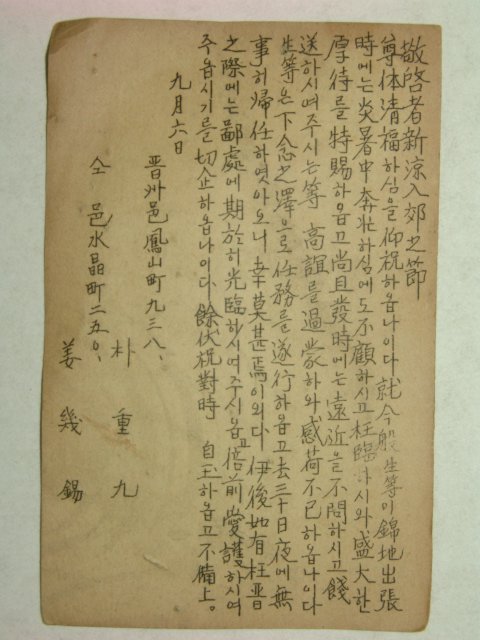 敬啓者新涼入郊之節
尊体淸福하심을仰祝하옵나이다 就今般生等이錦地出張
時에는炎暑中奔忙하심에도不顧하시고枉臨하시와盛大한
厚待를特賜하옵고尙且發時에는遠近을不問하시고餞
送하시여주시는等 高誼를過蒙하와感荷不已하옵나이다
生等은下念之澤으로任務를遂行하옵고去三十日夜에無
事히歸任하엿아오니幸莫甚焉이외다 伊後如有枉晋
之際에는鄙處에期於히光臨하시여주시옵고倍前愛護하시여
주옵시기를切企하옵나이다 餘伏祝對時 自玉하옵고不備上。
九月六日
晋州邑鳳山町九三八、
朴重九
仝邑水晶町二五〇、
姜幾錫